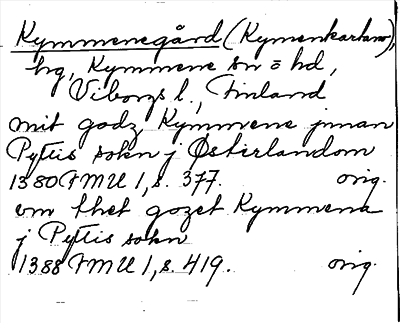 Kymmenegård (Kymenkartano),
hg, Kymmene sn o hd,
Viborgs l., Finland
mit godz Kymmene jnnan
Pyttis sokn j Østerlandom
1380 FMU 1, s. 377. orig.
om thet gozet Kymmena
j Pyttis sokn
1388 FMU 1, s. 419. orig.